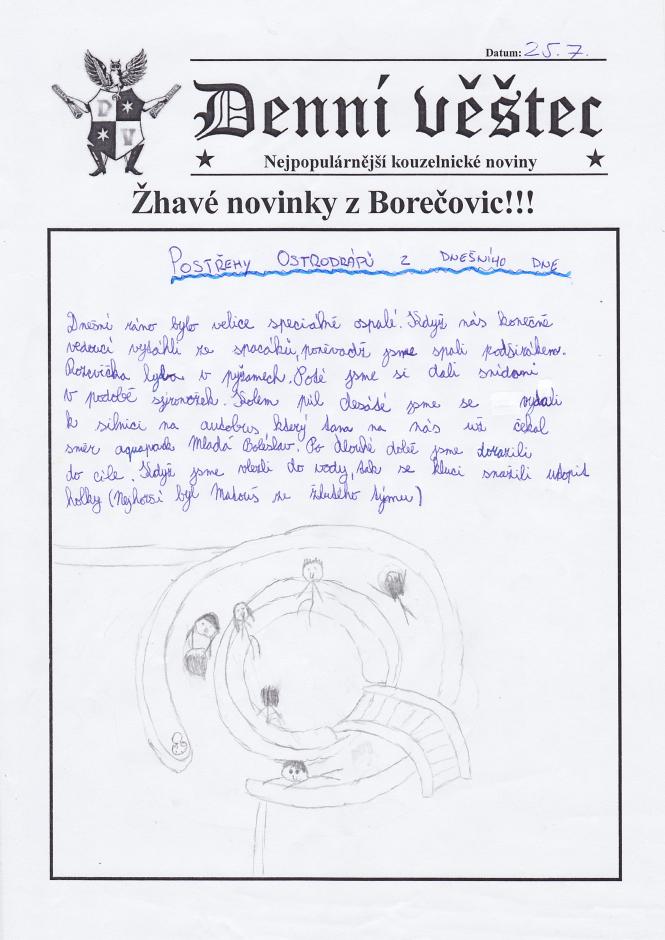 Datum: 25.7.
D V
Denní věštec
Nejpopulárnější kouzelnické noviny
Žhavé novinky z Borečovic!!!
POSTŘEHY OSTRODRÁPŮ Z DNEŠNÍHO DNE
Dnešní ráno bylo velice speciálně ospalé. Když nás konečně
vedoucí vytáhli ze spacáků, poněvadž jsme spali pod širákem.
Rozcvička byla v pyžamech. Poté jsme si dali snídani
v podobě Kolem půl desáté jsme se vydali
k silnici na autobus který tam na nás už čekal
směr aquapark Mladá Boleslav. Po dlouhé době jsme dorazili
do cíle. Když jsme vlezli do vody, tak se kluci snažili utopit
holky (Nejhorší byl Matouš ze žlutého týmu)